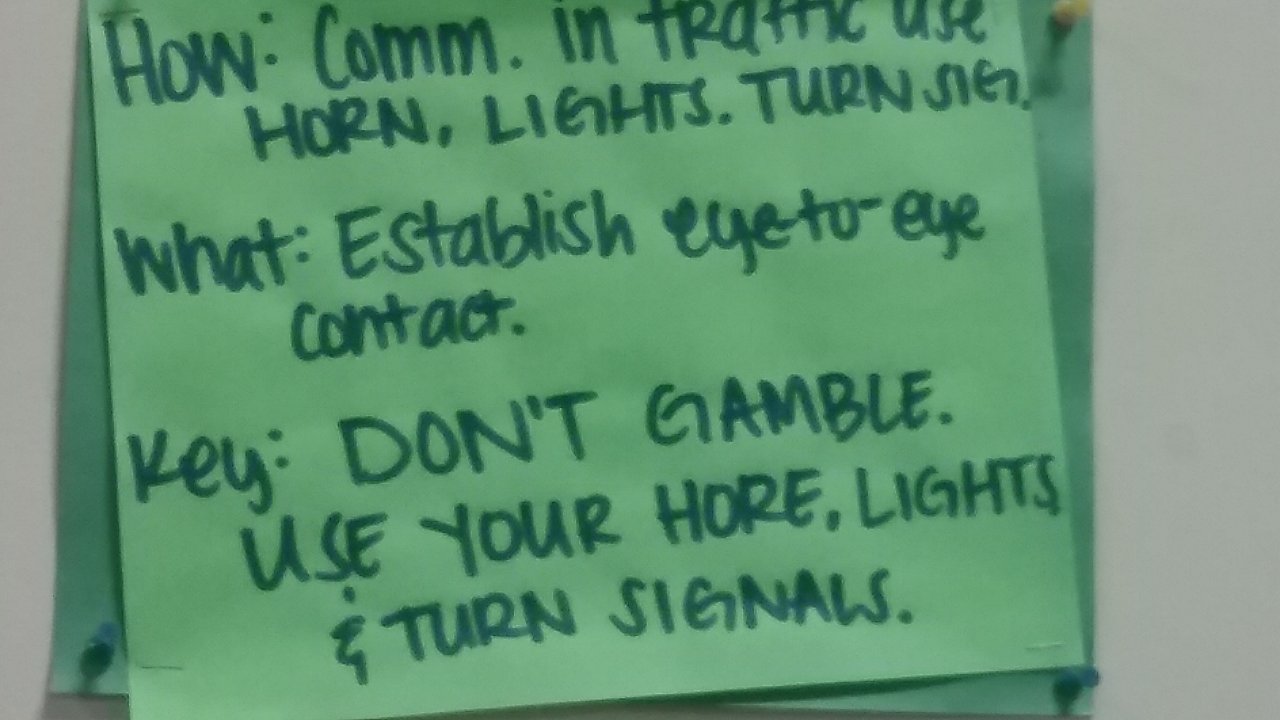 How: Comm. in traffic use
HORN, LIGHTS. TURN SIG.
What: Establish eye-to-eye
contact.
Key: DON'T GAMBLE.
USE YOUR HORE, LIGHTS
& TURN SIGNALS.